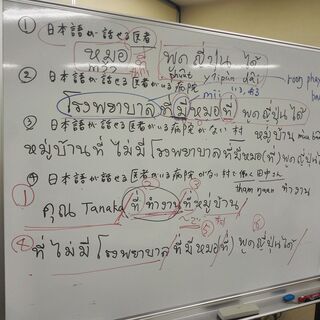 ① 日本語が話せる医者
หมอ ที่ พูดญี่ปุ่นได้
② 日本語が話せる医者がいる病院
โรงพยาบาลที่มีหมอที่พูดญี่ปุ่นได้
③ 日本語が話せる医者がいる病院がない村 หมู่บ้าน
หมู่บ้านที่ไม่มีโรงพยาบาลที่มีหมอ(ที่)พูดญี่ปุ่นได้
④ 日本語が話せる医者がいる病院がない村で働く田中さん
tham ทำงาน
① คุณ Tanaka ที่ทำงานที่หมู่บ้าน
④ ที่ไม่มีโรงพยาบาลที่มีหมอ(ที่)พูดญี่ปุ่นได้